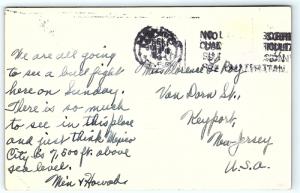 We are all going
to see a bull fight
here on Sunday.
There is so much
to see in this place
and just think Mexico
City is 7,500 ft. above
sea level.
Min & Howard
Miss Florence De Roy
Van Dorn St.,
Keyport,
New Jersey
U.S.A.